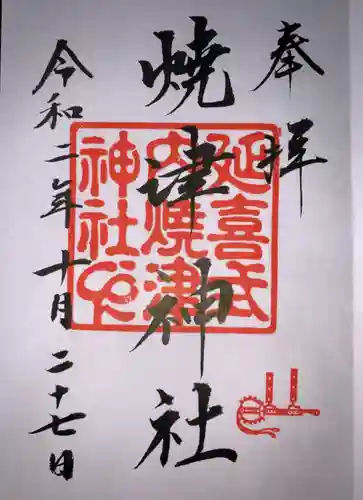 奉拝
焼津神社
令和二年十月二十七日
延喜式
内焼津
神社印